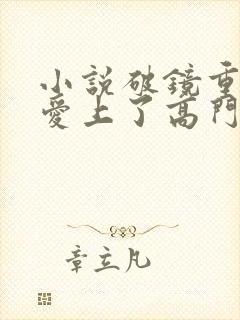 小說破鏡重
愛上了高門
章立凡